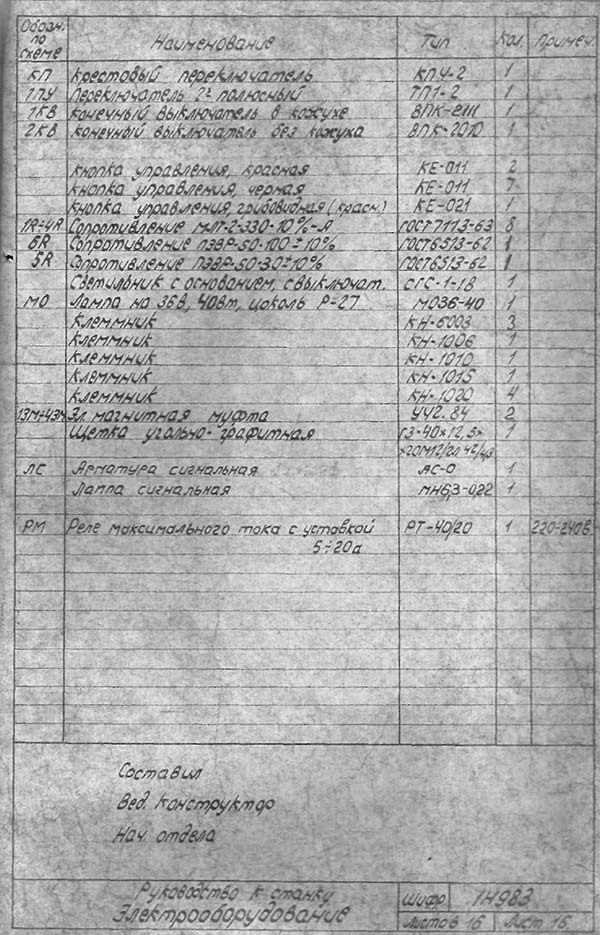 Обозн. по схеме Наименование Тип Кол. Примеч.
КП Крестовый переключатель КПУ-2 1
1ПУ Переключатель 2х полюсный ТП1-2 1
1КВ Конечный выключатель в кожухе ВПК-2111 1
2КВ Конечный выключатель без кожуха ВПК-2010 1
Кнопка управления, красная КЕ-011 2
Кнопка управления, черная КЕ-011 7
Кнопка управления, грибовидная (красн.) КЕ-021 1
1R÷4R Сопротивление МЛТ-2-330-10%-А ГОСТ7113-63 8
6R Сопротивление ПЭВР-50-100±10% ГОСТ6513-62 1
5R Сопротивление ПЭВР-50-30±10% ГОСТ6513-62 1
Светильник с основанием, с выключат. СГС-1-1В 1
МО Лампа на 36в, 40вт, цоколь Р-27 МО36-40 1
Клеммник КН-6003 3
Клеммник КН-1006 1
Клеммник КН-1010 1
Клеммник КН-1015 1
Клеммник КН-1020 4
Эл. магнитная муфта УУ2.84 2
Щетка угольно-графитная Г3-40×12,5× 1
ЛС Арматура сигнальная АС-0 1
Лампа сигнальная МН6,3-0,22 1
РМ Реле максимального тока с уставкой РТ-40/20 1 220-240в.
5÷20а
Составил
Вед. Конструктор
Нач. отдела
Руководство к станку Шифр 1Н983
Электрооборудование Листов 16 Лист 16